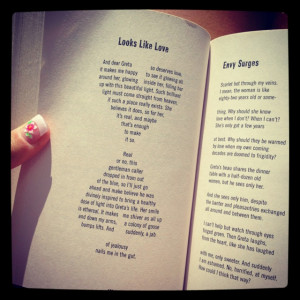 Looks Like Love
And dear Greta so deserves love,
it makes me happy to see it glowing all
around her, glowing inside her, filling her
up with this beautiful light. Such brilliant
light must come straight from heaven,
if such a place really exists. She
believes it does, so for her,
it's real, and maybe
that's enough
to make
it so.
Real
or no, this
gentleman caller
dropped in from out
of the blue, so I'll just go
ahead and make believe he was
divinely inspired to bring a healthy
dose of light into Greta's life. Her smile
is ethereal. It makes me shiver an all up
and down my arms, a colony of goose
bumps lifts. And suddenly, a jab
of jealousy
nails me in the gut.
Envy Surges
Scarlet hot through my veins.
I mean, the woman is like
eighty-two years old or some-
thing. Why should she know
love when I don't? When I can't?
She's only got a few years
at best. Why should they be warmed
by love when my own coming
decades are doomed to frigidity?
Greta's beau shares the dinner
table with a half-dozen old
women, but he sees only her.
And she sees only him, despite
the banter and pleasantries exchanged
all around and between them.
I can't help but watch through eyes
fringed green. Then Greta laughs,
from the heart, like she has laughed
with me, only sweeter. And suddenly
I am ashamed. No, horrified, at myself.
How could I think that way?